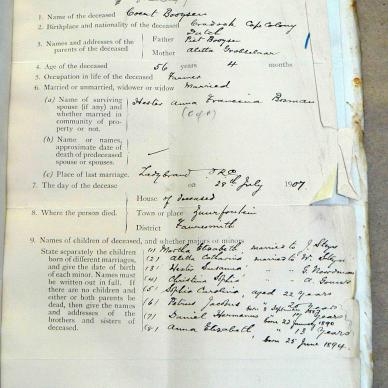 1. Name of the deceased Coert Booysen
2. Birthplace and nationality of the deceased Cradock Cape Colony
Dutch
3. Names and addresses of the parents of the deceased
Father Piet Booysen
Mother Aletta
4. Age of the deceased 56 years 4 months
5. Occupation in life of the deceased Farmer
6. Married or unmarried, widower or widow Married
(a) Name of surviving spouse (if any) and whether married in community of property or not.
Hester Anna Francina Bosman
(b) Name or names, approximate date of death of predeceased spouse or spouses.
(c) Place of last marriage. Ladybrand
7. The day of the decease on 28th July 1907
8. Where the person died.
House of deceased
Town or place
District Fauresmith
9. Names of children of deceased, and whether majors or minors
State separately the children born of different marriages, and give the date of birth of each minor. Names must be written out in full. If there are no children and either or both parents be dead, then give the names and addresses of the brothers and sisters of deceased.
(1) Martha Elizabeth married to J Steyn
(2) Aletta Catharina married to W Steyn
(3) Hester Susanna
(4) Christina Sophia
(5) Sophia Carolina, aged 22 years
(6) Petrus Jacobus
(7) Daniel Hermanus born 22 January 1890
(8) Anna Elizabeth 13 years
born 25 June 1894